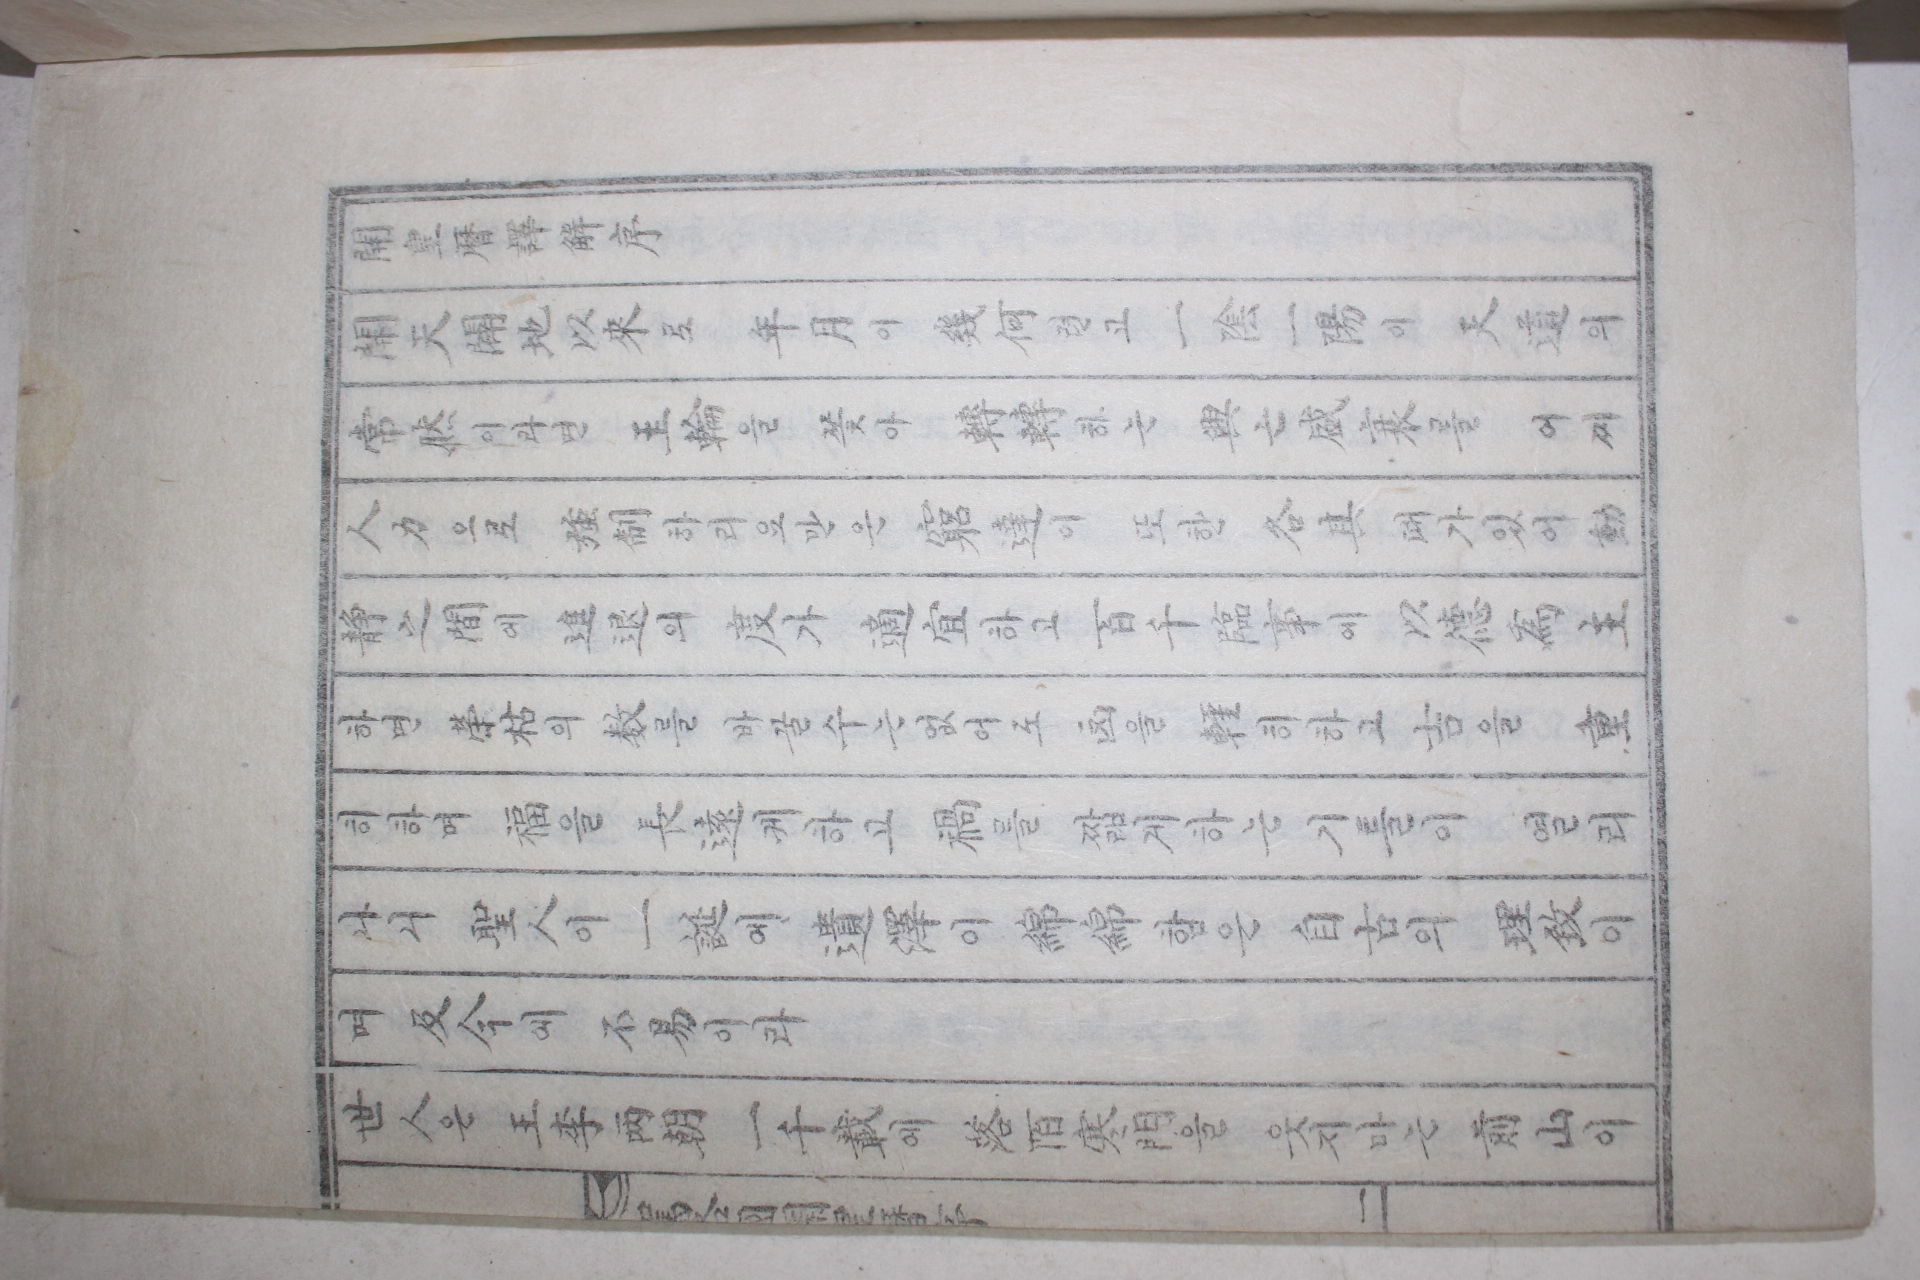 開皇曆譯解序
開天開地以來로 年月이 幾何런고 一陰一陽이 天道의
常然이라면 玉輪을 좇아 轉轉하는 興亡盛衰를 어찌
人力으로 強制하리요만은 窮達이 또한 各其 때가있어 動
靜之間에 進退의 度가 適宜하고 百千臨事에 以德爲主
하면 榮枯의 數를 바꿀수는없어도 凶을 輕히하고 吉을 重
히하며 福을 長遠케하고 禍를 짧게하는 기틀이 열리
나니 聖人이 一誕에 遺澤이 綿綿함은 自古의 理致이
며 及今에 不易이라
世人은 王李兩朝 一千載에 落陌寒門을 웃지마는 前山이
一